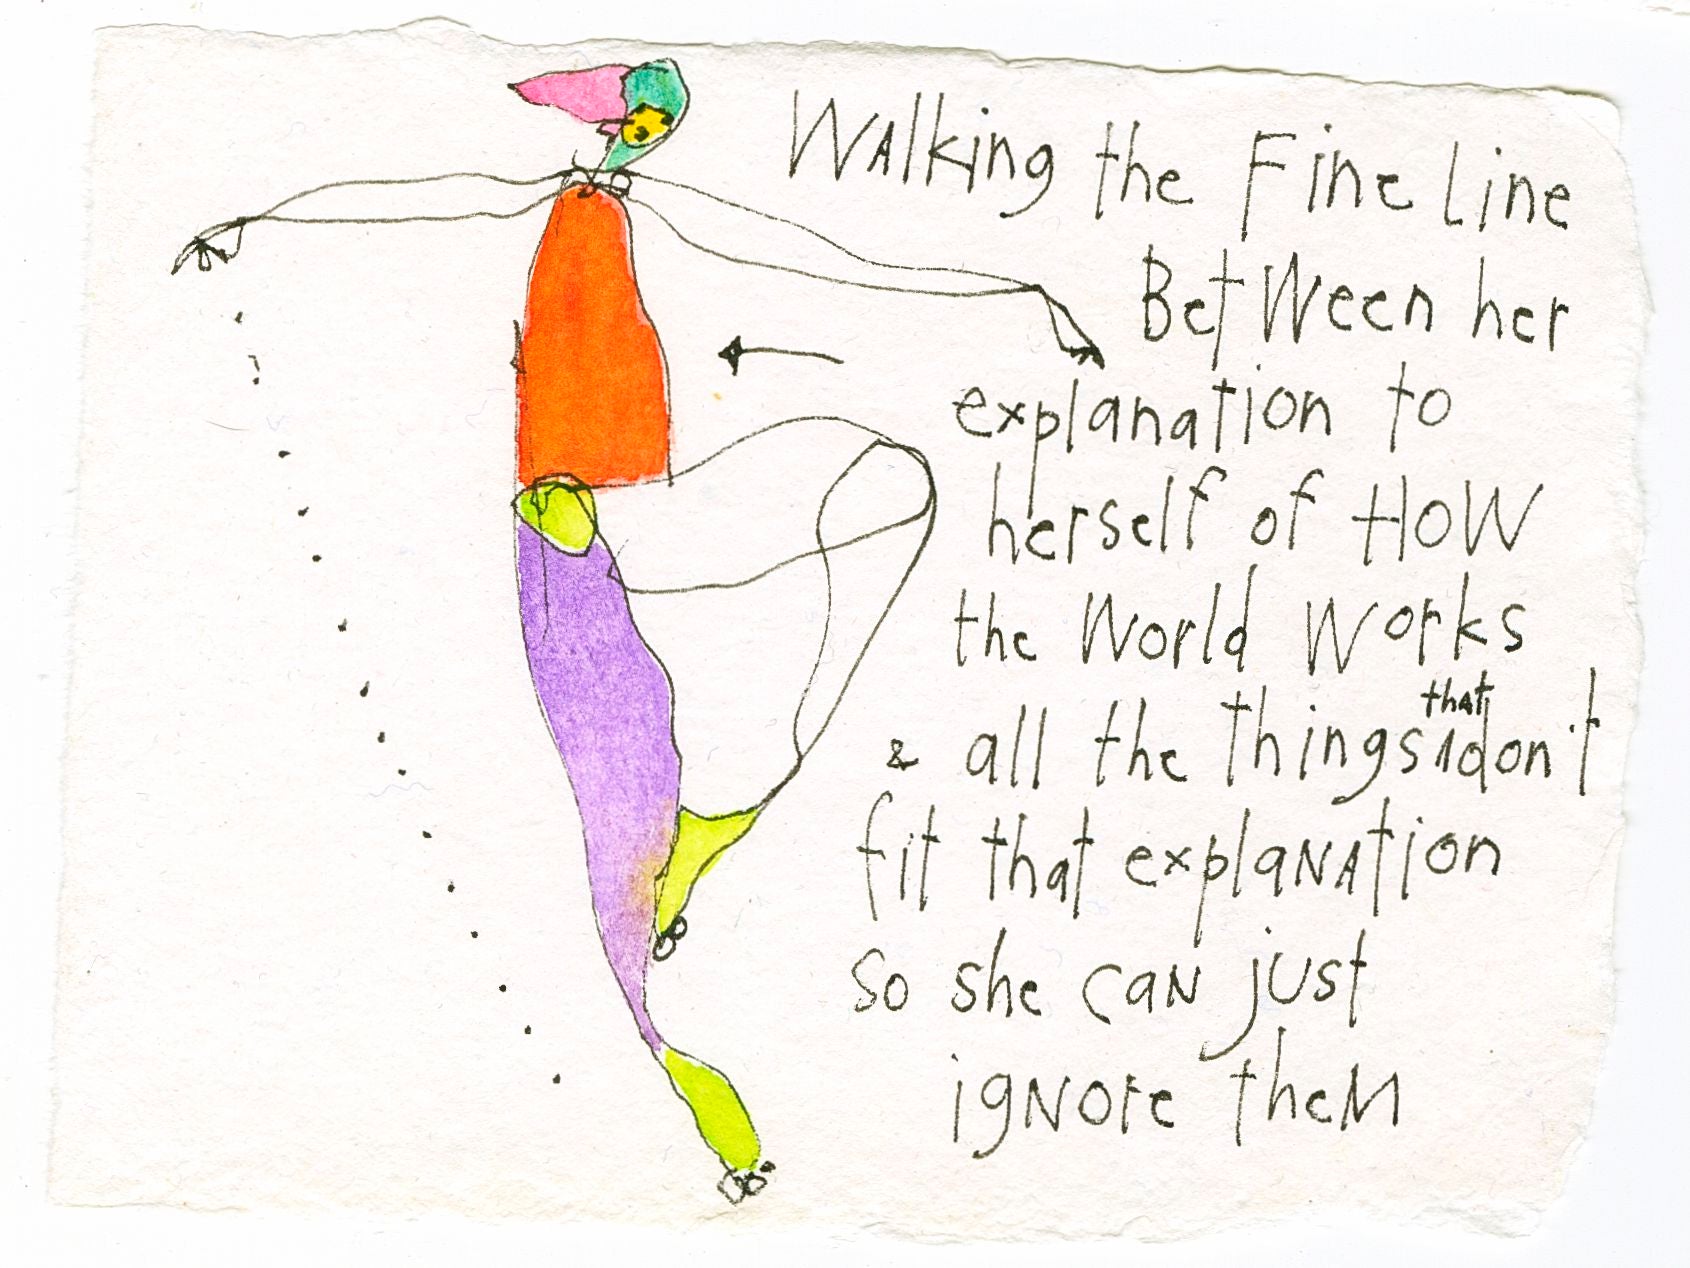 Walking the Fine Line
Between her
explanation to
herself of HOW
the World Works
& all the things that don't
fit that explanation
so she can just
ignore them